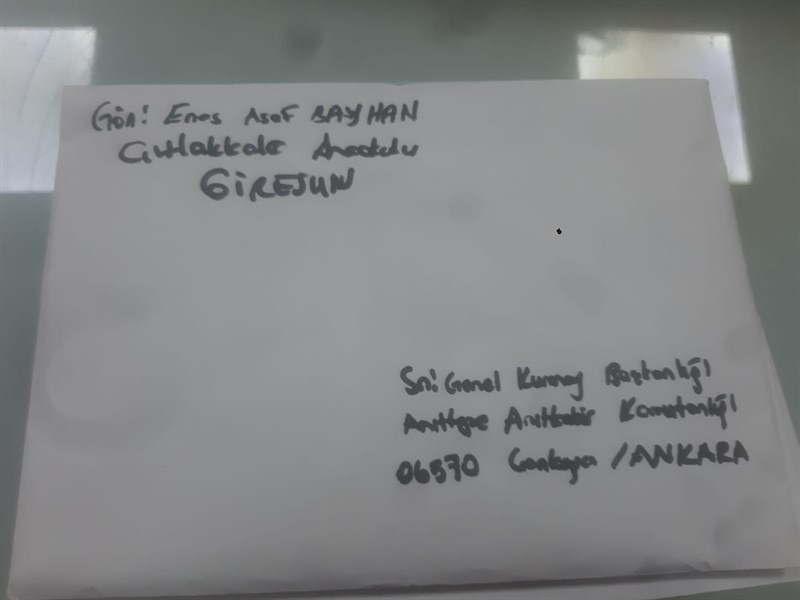 Gön: Enes Asaf BAYHAN
Çıtlakkale Anadolu
GİRESUN
Sn: Genel Kurmay Başkanlığı
Anıttepe Anıtkabir Komutanlığı
06570 Çankaya / ANKARA